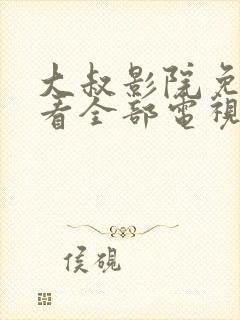 大叔影院免
看全部電視
侯硯